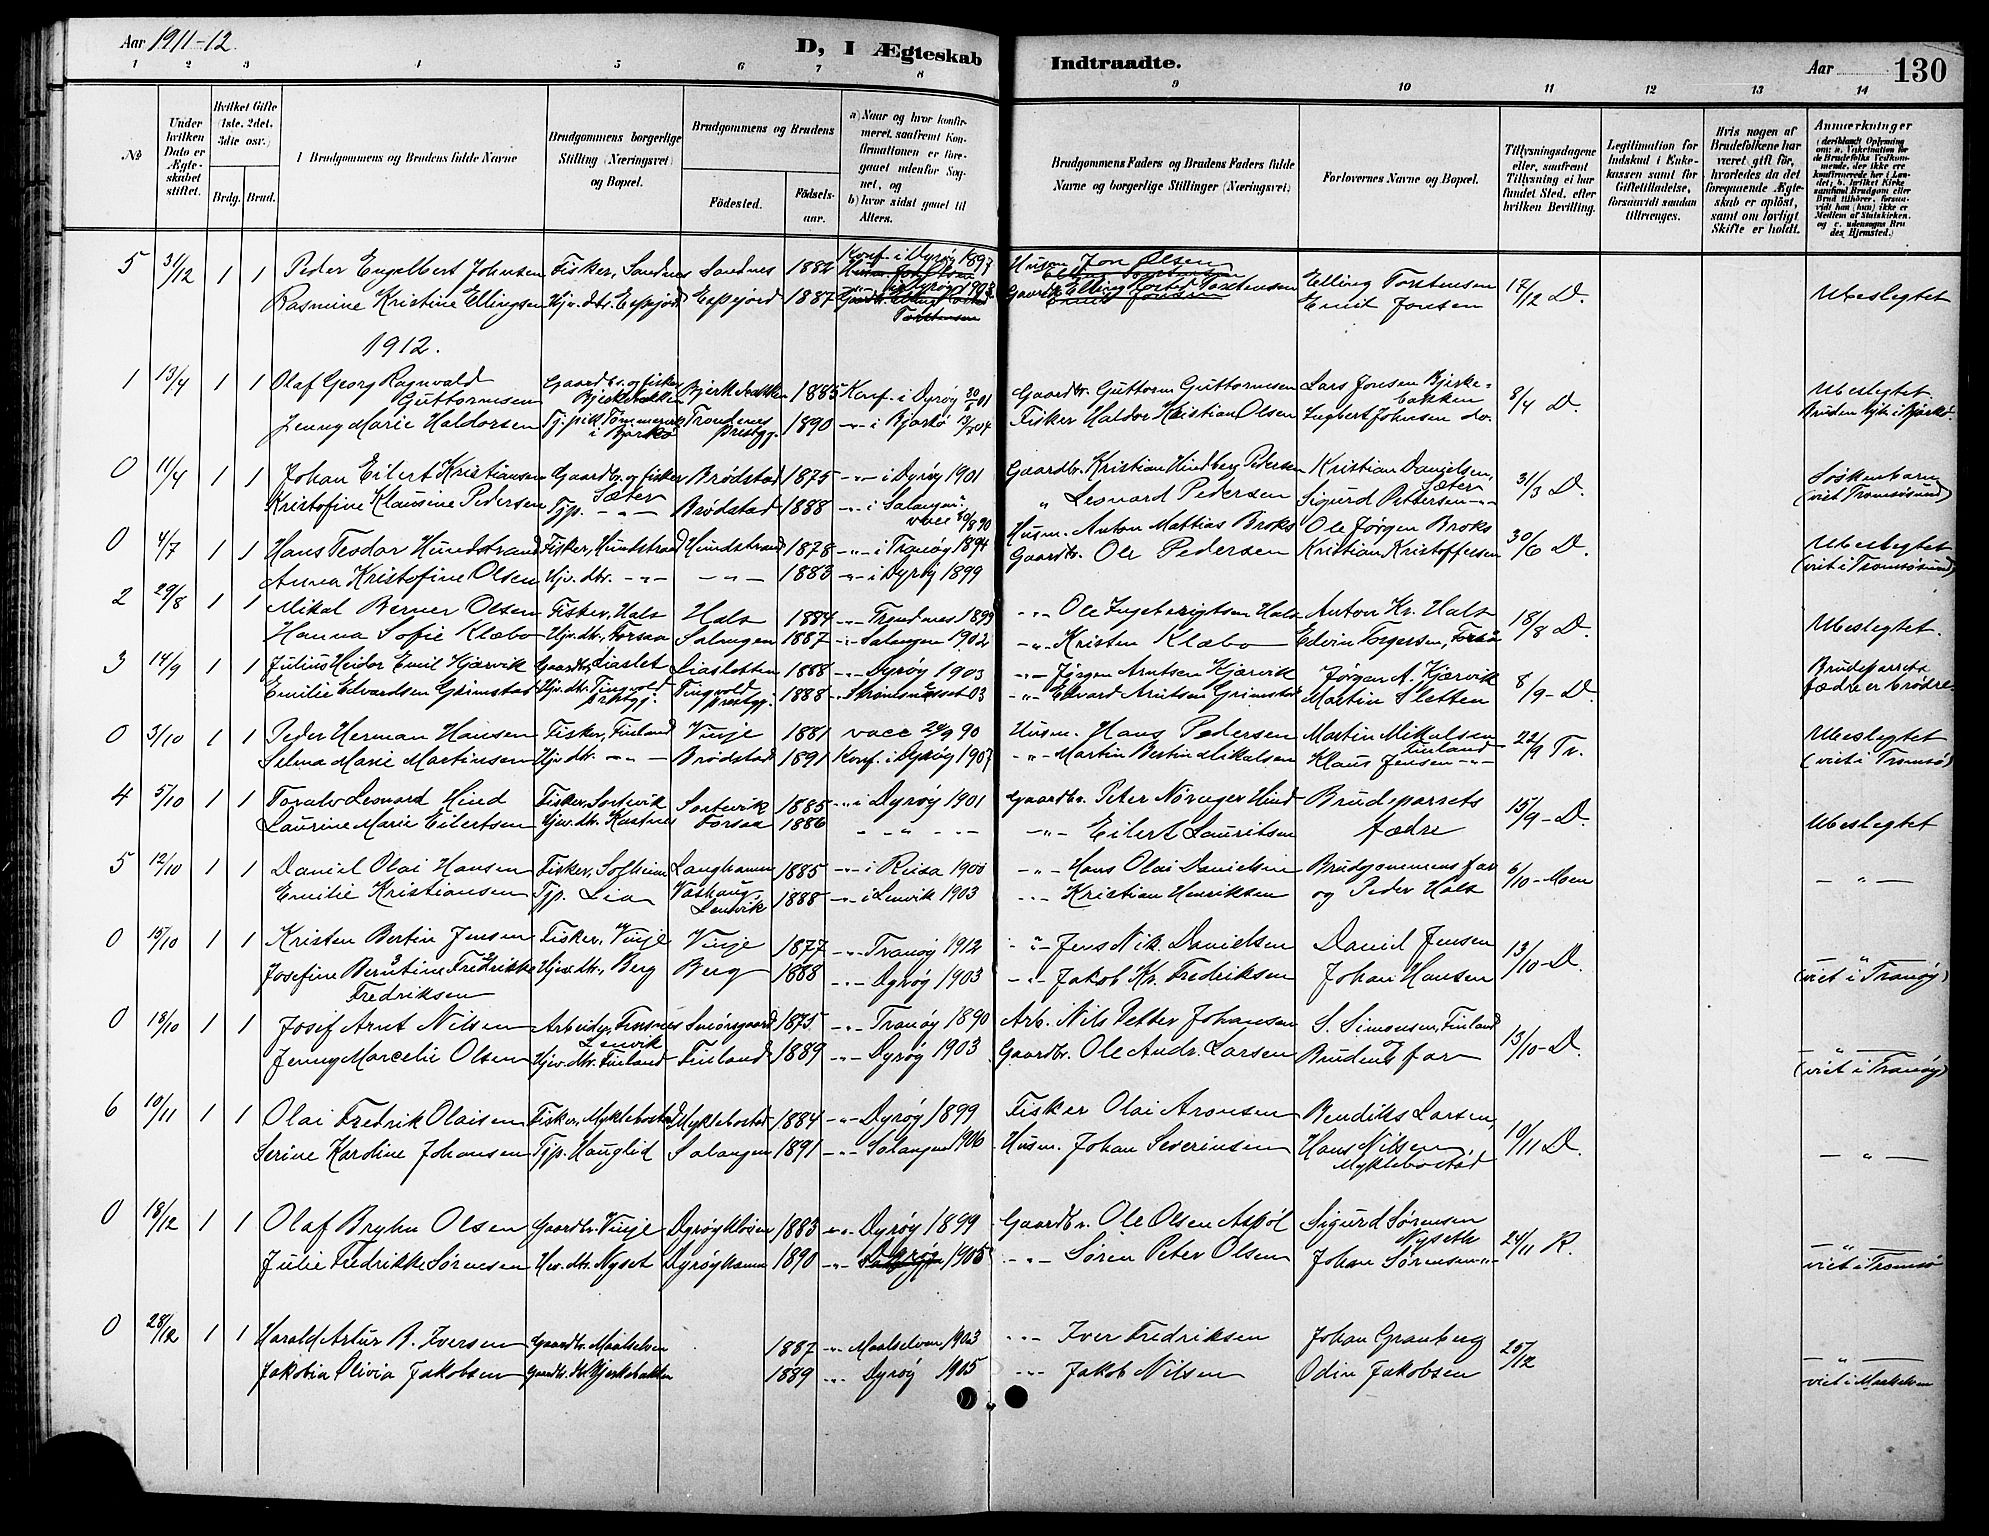 Aar 1911-12.
D, I Ægteskab
Indtraadte.
Aar 130
1 2 3 4 5 6 7 8 9 10 11 12 13 14
No
Under hvilken Dato er Ægteskabet stiftet.
Hvilket Gifte (1ste, 2det, 3die osv.)
Brdg. Brud.
Brudgommens og Brudens fulde Navne
Brudgommens borgerlige Stilling (Næringsvei) og Bopæl.
Brudgommens og Brudens
Fødested.
Fødselsaar.
a) Naar og hvor konfirmeret, saafremt Konfirmationen er foregaaet udenfor Sognet, og
b) hvor sidst gaaet til Alters.
Brudgommens Faders og Brudens Faders fulde Navne og borgerlige Stillinger (Næringsvei)
Forlovernes Navne og Bopæl.
Tillysningsdagene eller, saafremt Tillysning ei har fundet Sted, efter hvilken Bevilling.
Legitimation for Indskud i Enkekassen samt for Giftetilladelse, forsaavidt saadan tiltrænges.
Hvis nogen af Brudefolkene har været gift før, hvorledes da det foregaaende Ægteskab er opløst, samt om lovligt Skifte er holdt.
Anmærkninger
5 31/12 1 1 Peder Engelbert Johnsen Fisker, Sandnes Sandnes 1882 Konf. i Dyrøy 1897 Husm. Jon Olsen Elling Torstensen 17/12 D. Ubeslegtet
Rasmine Kristine Ellingsen Hjv. dtr. Espejord Espejord 1887 Gaardb. Elling Torstensen Emil Jonsen
1912.
1 13/4 1 1 Olaf Georg Ragnvald Guttormsen Gaardbr. og fisker Bjerkebakken Bjerkebakken 1885 Konf. i Dyrøy 30/6 01 Gaardbr. Guttorm Guttormsen Lars Jonsen Bjerkebakken 8/4 D. Ubeslegtet.
Jenny Marie Haldorsen Tj. pik. i Bjarkø Trondenes prestgj. 1890 -"- i Bjarkø Fisker Haldor Kristian Olsen Ingbert Johnsen do.
0 11/4 1 1 Johan Eilert Kristiansen Gaardbr. og fisker Sæter Brødstad 1875 -"- i Dyrøy 1901 Gaardbr. Kristian Hindberg Pedersen Kristian Danielsen, Sæter 31/3 D. Søskenbarn (viet Tromsøsund)
Kristofine Klausine Pedersen Tjp. -"- Brødstad 1888 -"- i Salangen " Leonard Pedersen Sigurd Pettersen -"-
0 4/7 1 1 Hans Teodor Hundstrand Fisker, Hundstrand Hundstrand 1878 -"- i Tranøy 1894 Husm. Anton Mattias Broks Ole Jørgen Broks 30/6 D. Ubeslegtet (viet i Tromsøsund)
Anna Kristofine Olsen Hjv. dtr. -"- -"- 1883 -"- i Dyrøy 1899 Gaardbr. Ole Pedersen Kristian Kristoffersen
2 29/8 1 1 Mikal Berner Olsen Fisker, Hals Hals 1884 -"- Trondenes 1899 -"- Ole Ingebrigtsen Hals Anton Kr. Hals 18/8 D. Ubeslegtet.
Hanna Sofie Klæbo Hjv. dtr. Forsaa Salangen 1887 -"- Salangen 1902 -"- Kristen Klæbo Edvin Torgersen, Forsaa
3 14/9 1 1 Julius Heidor Emil Kjærvik Gaardbr. Liaslet Liasletten 1888 -"- Dyrøy 1903 -"- Jørgen Arntsen Kjærvik Jørgen A. Kjærvik 8/9 - D. Brudeparrets fædre er brødre
Emilie Edvardsen Grimstad Hjv. dtr. Tingvold prestgj. Tingvold prestgj. 1888 -"- 03 -"- Edvard Arntsen Grimstad Martin Sletten
0 3/10 1 1 Peder Herman Hansen Fisker, Finland Vinje 1881 vacc 24/9 90 Husm. Hans Pedersen Martin Mikalsen Finland 22/9 Tr. Ubeslegtet (viet i Tromsø)
Selma Marie Martinsen Hjv. dtr. -"- Brødstad 1891 Konf. i Dyrøy 1907 -"- Martin Bertin Mikalsen Klaus Jensen -"-
4 5/10 1 1 Toralv Leonard Hind Fisker, Sortevik Sortevik 1885 -"- i Dyrøy 1901 Gaardbr. Peter Nøvager Hind Brudeparrets fædre 15/9 - D. Ubeslegtet
Laurine Marie Eilertsen Hjv. dtr. Kastnes Forsaa 1886 -"- -"- Eilert Lauritsen
5 12/10 1 1 Daniel Olai Hansen Fisker, Solheim Langhamn 1885 -"- i Reisa 1900 -"- Hans Olai Danielsen Brudgommens far og Peder Hals 6/10 - Moen -"-
Emilie Kristiansen Tjp. Lia Vashaug Lenvik 1888 -"- i Lenvik 1903 -"- Kristian Henriksen
0 15/10 1 1 Kristen Bertin Jensen Fisker, Vinje Vinje 1877 -"- Tranøy 1912 -"- Jens Nik. Danielsen Daniel Jensen 13/10 - D. -"- (viet i Tranøy)
Josefine Berntine Fredrikke Fredriksen Hjv. dtr., Berg Berg 1888 -"- Dyrøy 1903 -"- Jakob Kr. Fredriksen Johan Hansen
0 18/10 1 1 Josif Arnt Nilsen Arbeider, Finsnes Lenvik Smørsgaard 1875 -"- Tranøy 1890 Arb. Nils Petter Johansen S. Simonsen, Finland og 13/10 - D. -"- (viet i Tranøy)
Jenny Marcelie Olsen Hjv. dtr. Finland Finland 1889 -"- Dyrøy 1903 Gaardbr. Ole Andr. Larsen Brudens far
6 10/11 1 1 Olai Fredrik Olaisen Fisker, Myklebostad Myklebostad 1884 -"- Dyrøy 1899 Fisker Olai Aronsen Bendiks Larsen, 10/11 D. -"-
Serine Karoline Johansen Tjp. Hauglid Salangen 1891 -"- Salangen 1906 Husm. Johan Severinsen Hans Nilsen Myklebostad
0 18/12 1 1 Olaf Bryhn Olsen Gaardbr. Vinje Dyrøykloven 1883 -"- Dyrøy 1899 Gaardbr. Ole Olsen Aspøl Sigurd Sørensen Nyseth 24/11 K. -"- viet i Tromsø
Julie Fredrikke Sørensen Hjv. dtr. Nyset Dyrøyhamn 1890 -"- Dyrøy 1905 -"- Søren Peter Olsen Johan Sørensen -"-
0 28/12 1 1 Harald Artur B. Iversen Gaardbr. Maalselven 1887 -"- Maalselven 1903 -"- Iver Fredriksen Johan Granberg 25/12 -"- viet i Maalselven
Jakobia Olivia Jakobsen Gaardbr. dtr. Bjerkebakken 1889 -"- Dyrøy 1905 -"- Jakob Nilsen Odin Jakobsen